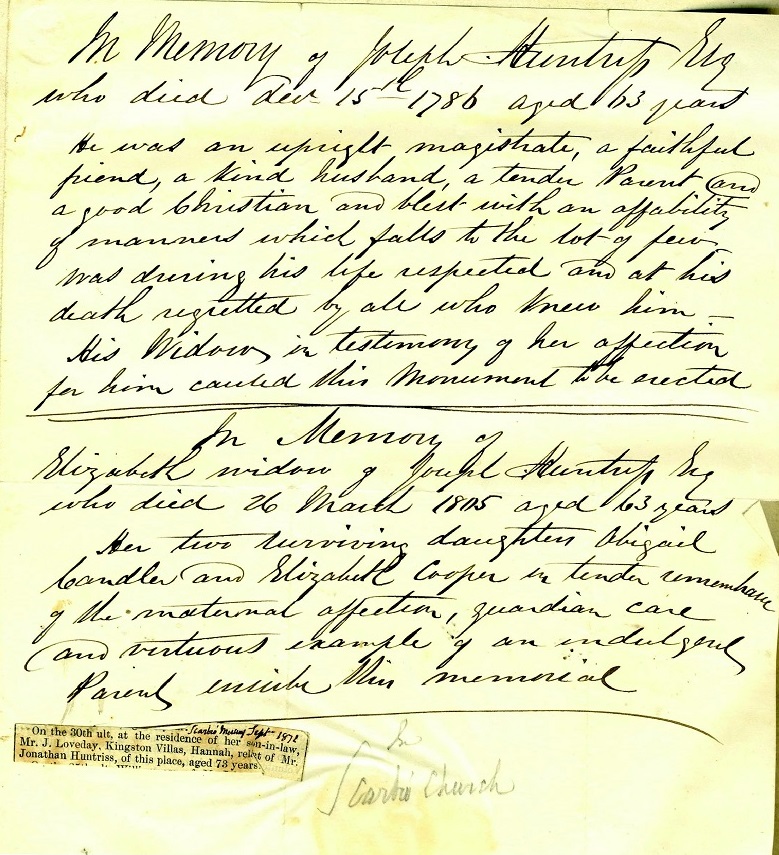 In Memory of Joseph Huntriss Esq
who died Decr 15th 1786 aged 63 years
He was an upright magistrate, a faithful
friend, a kind husband, a tender Parent and
a good Christian and blest with an affability
of manners which falls to the lot of few
was during his life respected and at his
death regretted by all who knew him –
His Widow in testimony of her affection
for him caused this Monument to be erected
In Memory of
Elizabeth widow of Joseph Huntriss Esq
who died 26 March 1805 aged 63 years
Her two surviving daughters Abigail
Candler and Elizabeth Cooper in tender remembrance
of the maternal affection, guardian care
and virtuous example of an indulgent
Parent inscribe this memorial
Scarbro Mercury Sept 1872
On the 30th ult, at the residence of her son-in-law,
Mr. J. Loveday, Kingston Villas, Hannah, relict of Mr.
Jonathan Huntriss, of this place, aged 73 years.
In
Scarbro' Church